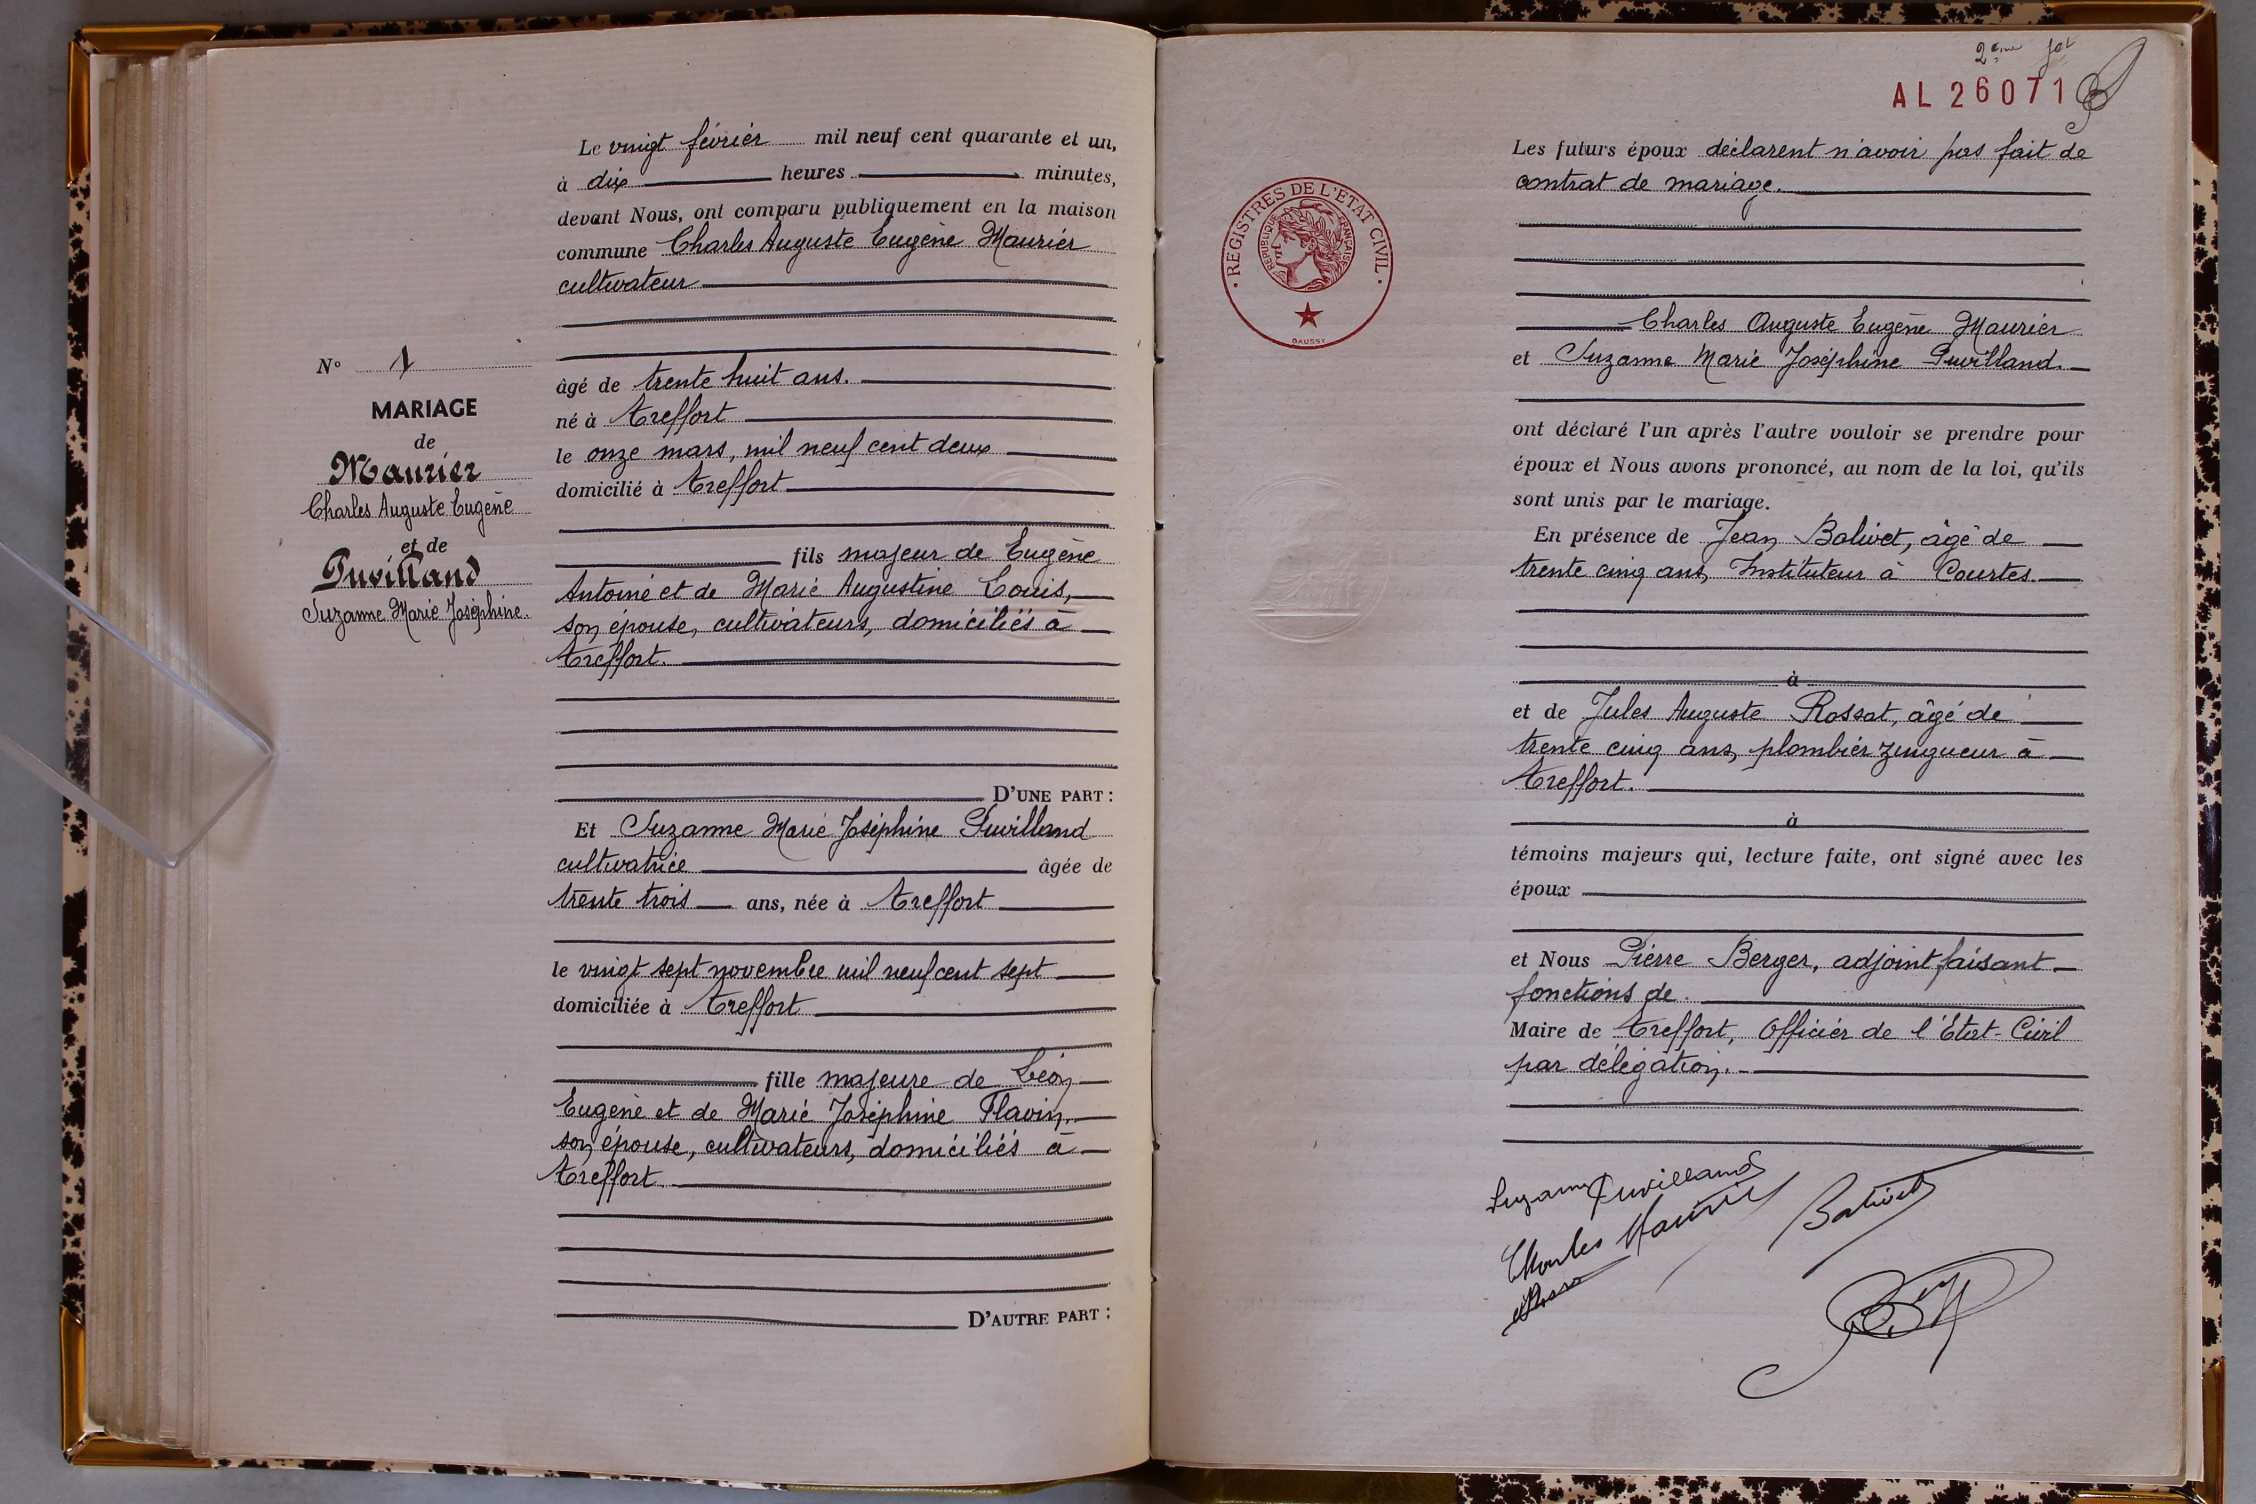 Le vingt février mil neuf cent quarante et un,
à dix heures minutes,
devant Nous, ont comparu publiquement en la maison
commune Charles Auguste Eugène Maurier
cultivateur
âgé de trente huit ans.
né à Treffort
le onze mars, mil neuf cent deux
domicilié à Treffort
fils majeur de Eugène
Antoine et de Marie Augustine Couis,
son épouse, cultivateurs, domiciliés à
Treffort.
D'UNE PART :
Et Suzanne Marie Joséphine Puvilland
cultivatrice âgée de
trente trois ans, née à Treffort
le vingt sept novembre mil neuf cent sept
domiciliée à Treffort
fille majeure de Léon
Eugène et de Marie Joséphine Flavin,
son épouse, cultivateurs, domiciliés à
Treffort.
D'AUTRE PART :
N° 1
MARIAGE
de
Maurier
Charles Auguste Eugène
et de
Puvilland
Suzanne Marie Joséphine.
2eme
AL 26071
REGISTRES DE L'ETAT CIVIL
REPUBLIQUE FRANÇAISE
DAUSSY
Les futurs époux déclarent n'avoir pas fait de
contrat de mariage.
Charles Auguste Eugène Maurier
et Suzanne Marie Joséphine Puvilland.
ont déclaré l'un après l'autre vouloir se prendre pour
époux et Nous avons prononcé, au nom de la loi, qu'ils
sont unis par le mariage.
En présence de Jean Balivet, âgé de
trente cinq ans, Instituteur à Courtes.
à
et de Jules Auguste Rossat, âgé de
trente cinq ans, plombier zingueur à
Treffort.
à
témoins majeurs qui, lecture faite, ont signé avec les
époux
et Nous Pierre Berger, adjoint faisant
fonctions de
Maire de Treffort, Officier de l'Etat-Civil
par délégation.
Suzanne Puvilland
Charles Maurier
Balivet